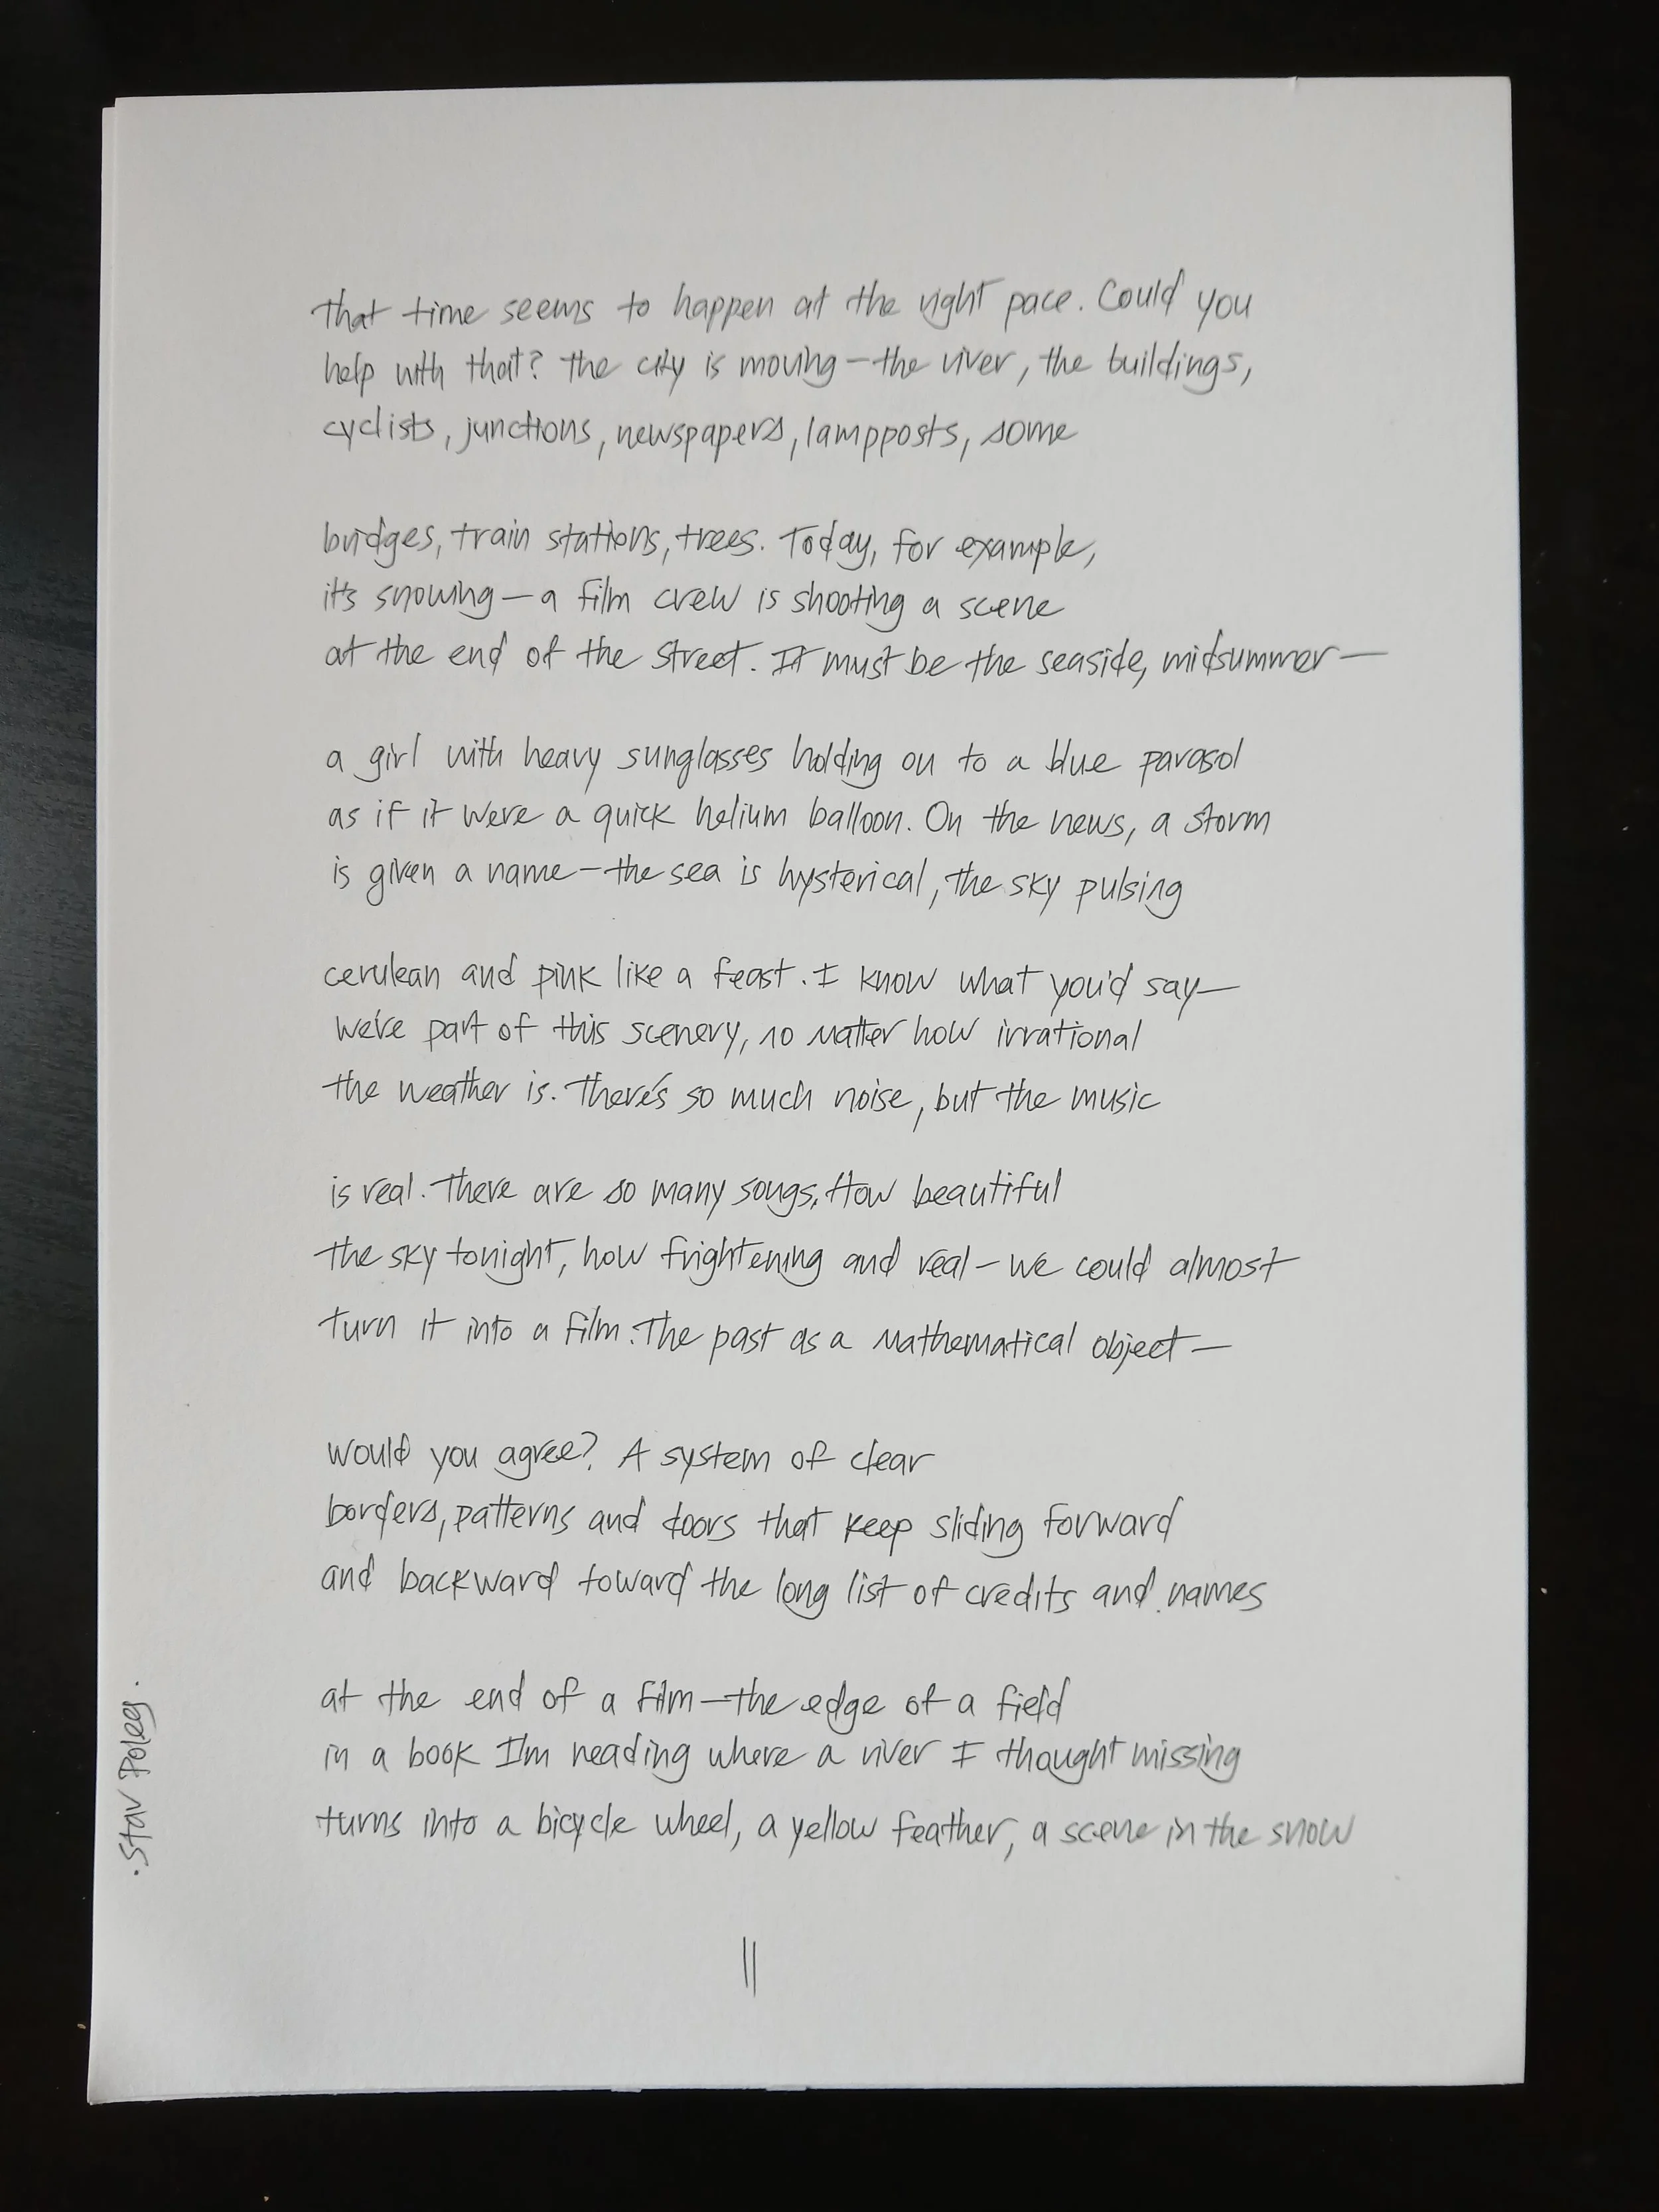 that time seems to happen at the right pace. Could you
help with that? The city is moving—the river, the buildings,
cyclists, junctions, newspapers, lampposts, some
bridges, train stations, trees. Today, for example,
it's snowing—a film crew is shooting a scene
at the end of the street. It must be the seaside, midsummer—
a girl with heavy sunglasses holding on to a blue parasol
as if it were a quick helium balloon. On the news, a storm
is given a name—the sea is hysterical, the sky pulsing
cerulean and pink like a feast. I know what you'd say—
we're part of this scenery, no matter how irrational
the weather is. There's so much noise, but the music
is real. There are so many songs. How beautiful
the sky tonight, how frightening and real—we could almost
turn it into a film. The past as a mathematical object—
would you agree? A system of clear
borders, patterns and doors that keep sliding forward
and backward toward the long list of credits and names
at the end of a film—the edge of a field
in a book I'm reading where a river I thought missing
turns into a bicycle wheel, a yellow feather, a scene in the snow
||
.Stav Poleg.